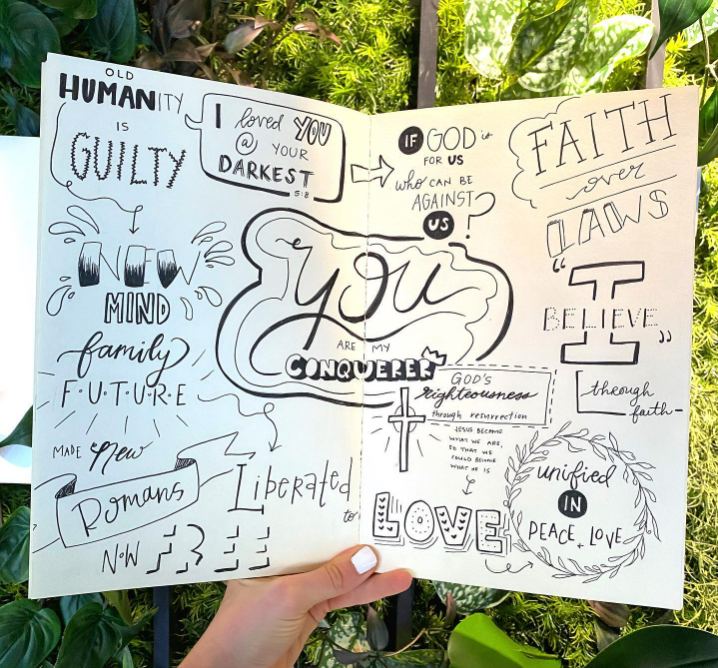 OLD
HUMANITY
IS
GUILTY
I loved YOU
@ YOUR
DARKEST
5:8
NEW
MIND
family
F·U·T·U·R·E
MADE new
Romans
NOW FREE
Liberated
to
IF GOD is
FOR US
who CAN BE
AGAINST
US?
YOU
ARE MY
CONQWERER
GOD'S
righteousness
through resurrection
JESUS BECAME
WHAT WE ARE,
SO THAT WE
COULD BECOME
WHAT HE IS
LOVE
FAITH
over
LAWS
"I
BELIEVE"
through
faith-
unified
IN
PEACE + LOVE